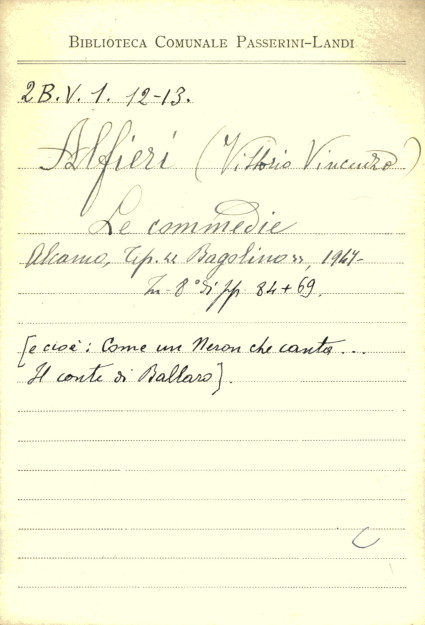 BIBLIOTECA COMUNALE PASSERINI-LANDI
2 B. V. 1. 12-13.
Alfieri (Vittorio Vincenzo)
Le commedie
Alcamo, Tip. "Bagolino", 1947-
In 8° di pp. 84+69.
[e cioè: Come un Neron che canta...
Il conte di Ballaro].